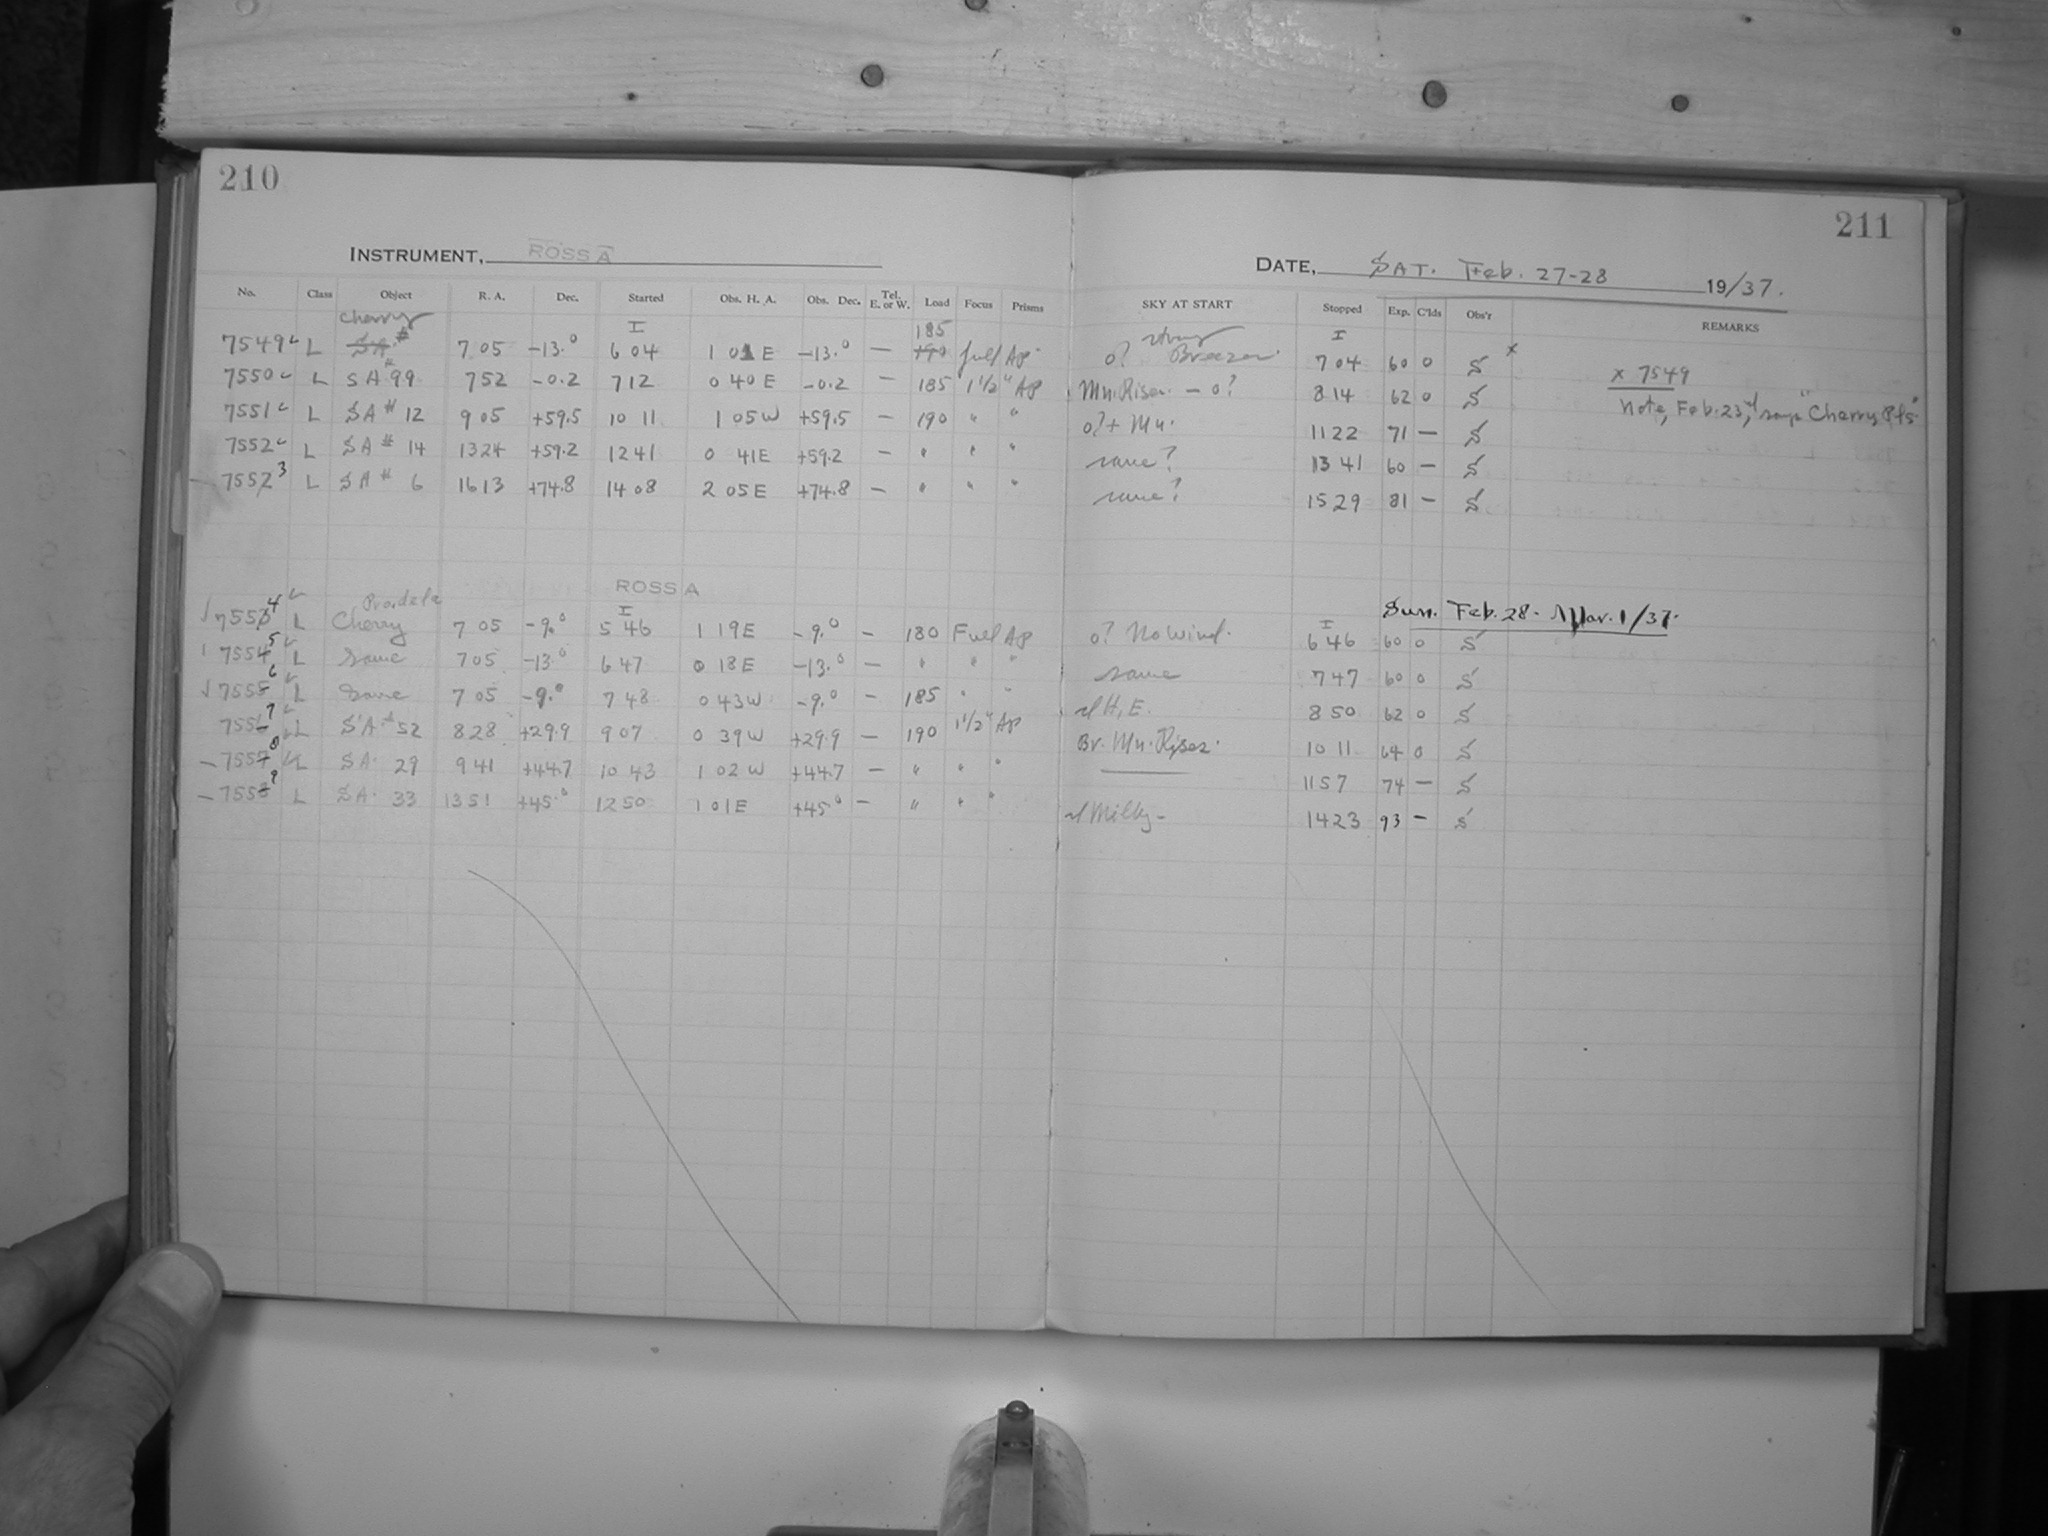 210
211
INSTRUMENT, ROSS A
DATE, SAT. Feb. 27-28 19/37.
No. Class Object R. A. Dec. Started Obs. H. A. Obs. Dec. Tel. E. or W. Load Focus Prisms SKY AT START Stopped Exp. C'lds Obs'r REMARKS
Cherry I 185 strong I
7549 L SA # 7 05 -13.° 6 04 1 01 E -13.° — 190 full Ap o? Breezes. 7 04 60 0 S x
7550 L SA # 99 7 52 -0.2 7 12 0 40 E -0.2 — 185 1 1/2" Ap Mn. Rises. — o? 8 14 62 0 S x 7549
7551 L SA # 12 9 05 +59.5 10 11 1 05 W +59.5 — 190 " " o? + Mn. 11 22 71 — S Note, Feb. 23, says "Cherry Pts"
7552 L SA # 14 13 24 +59.2 12 41 0 41 E +59.2 — " " " same? 13 41 60 — S
7553 L SA # 6 16 13 +74.8 14 08 2 05 E +74.8 — " " " same? 15 29 81 — S
ROSS A
Sun. Feb. 28 - Mar. 1/37.
I I
7554 L Cherry 7 05 -9.° 5 46 1 19 E -9.° — 180 Full Ap o? No Wind. 6 46 60 0 S
7555 L Same 7 05 -13.° 6 47 0 18 E -13.° — " " " same 7 47 60 0 S
7556 L Same 7 05 -9.° 7 48 0 43 W -9.° — 185 " " H, E. 8 50 62 0 S
7557 L SA # 52 8 28 +29.9 9 07 0 39 W +29.9 — 190 1 1/2" Ap Br. Mn. Rises. 10 11 64 0 S
7558 L SA. 29 9 41 +44.7 10 43 1 02 W +44.7 — " " " — 11 57 74 — S
7559 L SA. 33 13 51 +45.° 12 50 1 01 E +45° — " " " Milky - 14 23 93 — S